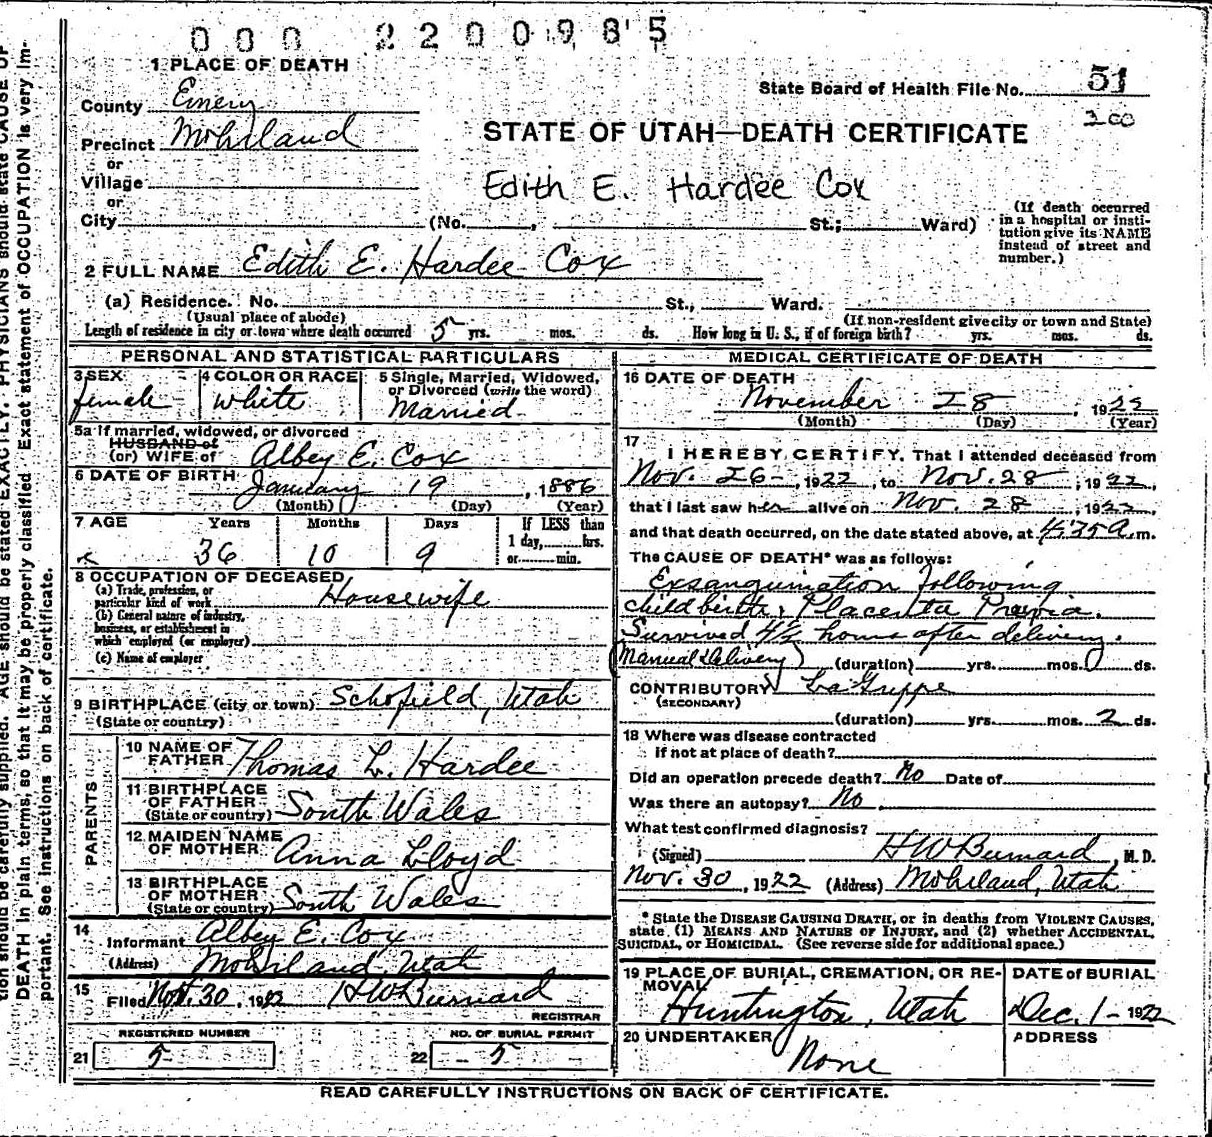 000 2200985
1 PLACE OF DEATH
State Board of Health File No. 51
County Emery
200
Precinct Mohrland
STATE OF UTAH—DEATH CERTIFICATE
or
Village
Edith E. Hardee Cox
or
City (No. , St.; Ward)
(If death occurred in a hospital or insti-
tution give its NAME
instead of street and
number.)
2 FULL NAME Edith E. Hardee Cox
(a) Residence. No. St., Ward.
(Usual place of abode) (If non-resident give city or town and State)
Length of residence in city or town where death occurred 5 yrs. mos. ds. How long in U. S., if of foreign birth? yrs. mos. ds.
PERSONAL AND STATISTICAL PARTICULARS
3 SEX female
4 COLOR OR RACE White
5 Single, Married, Widowed,
or Divorced (write the word)
Married
5a If married, widowed, or divorced
HUSBAND of
(or) WIFE of Albey E. Cox
6 DATE OF BIRTH January 19, 1886
(Month) (Day) (Year)
7 AGE Years Months Days If LESS than
1 day, hrs.
or min.
36 10 9
8 OCCUPATION OF DECEASED
(a) Trade, profession, or
particular kind of work Housewife
(b) General nature of industry,
business, or establishment in
which employed (or employer)
(c) Name of employer
9 BIRTHPLACE (city or town) Schofield, Utah
(State or country)
PARENTS
10 NAME OF
FATHER Thomas L. Hardee
11 BIRTHPLACE
OF FATHER
(State or country) South Wales
12 MAIDEN NAME
OF MOTHER Anna Lloyd
13 BIRTHPLACE
OF MOTHER
(State or country) South Wales
14
Informant Albey E. Cox
(Address) Mohrland, Utah
15
Filed Nov. 30, 1922 H W Burnard
REGISTRAR
REGISTERED NUMBER
21 5
NO. OF BURIAL PERMIT
22 5
MEDICAL CERTIFICATE OF DEATH
16 DATE OF DEATH
November 28, 1922
(Month) (Day) (Year)
17
I HEREBY CERTIFY, That I attended deceased from
Nov. 26-, 1922, to Nov. 28, 1922,
that I last saw her alive on Nov. 28, 1922,
and that death occurred, on the date stated above, at 4:35 a.m.
The CAUSE OF DEATH* was as follows:
Exsanguination following
childbirth, Placenta Previa.
Survived 4½ hours after delivery.
(Manual Delivery) (duration) yrs. mos. ds.
CONTRIBUTORY La Grippe
(SECONDARY)
(duration) yrs. mos. 2 ds.
18 Where was disease contracted
if not at place of death?
Did an operation precede death? No Date of
Was there an autopsy? No
What test confirmed diagnosis?
(Signed) H W Burnard, M. D.
Nov. 30, 1922 (Address) Mohrland, Utah
* State the DISEASE CAUSING DEATH, or in deaths from VIOLENT CAUSES,
state (1) MEANS AND NATURE OF INJURY, and (2) whether ACCIDENTAL,
SUICIDAL, or HOMICIDAL. (See reverse side for additional space.)
19 PLACE OF BURIAL, CREMATION, OR RE-
MOVAL
Huntington, Utah
DATE of BURIAL
Dec. 1 - 1922
20 UNDERTAKER
None
ADDRESS
READ CAREFULLY INSTRUCTIONS ON BACK OF CERTIFICATE.
tion should be carefully supplied. AGE should be stated EXACTLY. PHYSICIANS should state CAUSE OF
DEATH in plain terms, so that it may be properly classified. Exact statement of OCCUPATION is very im-
portant. See instructions on back of certificate.